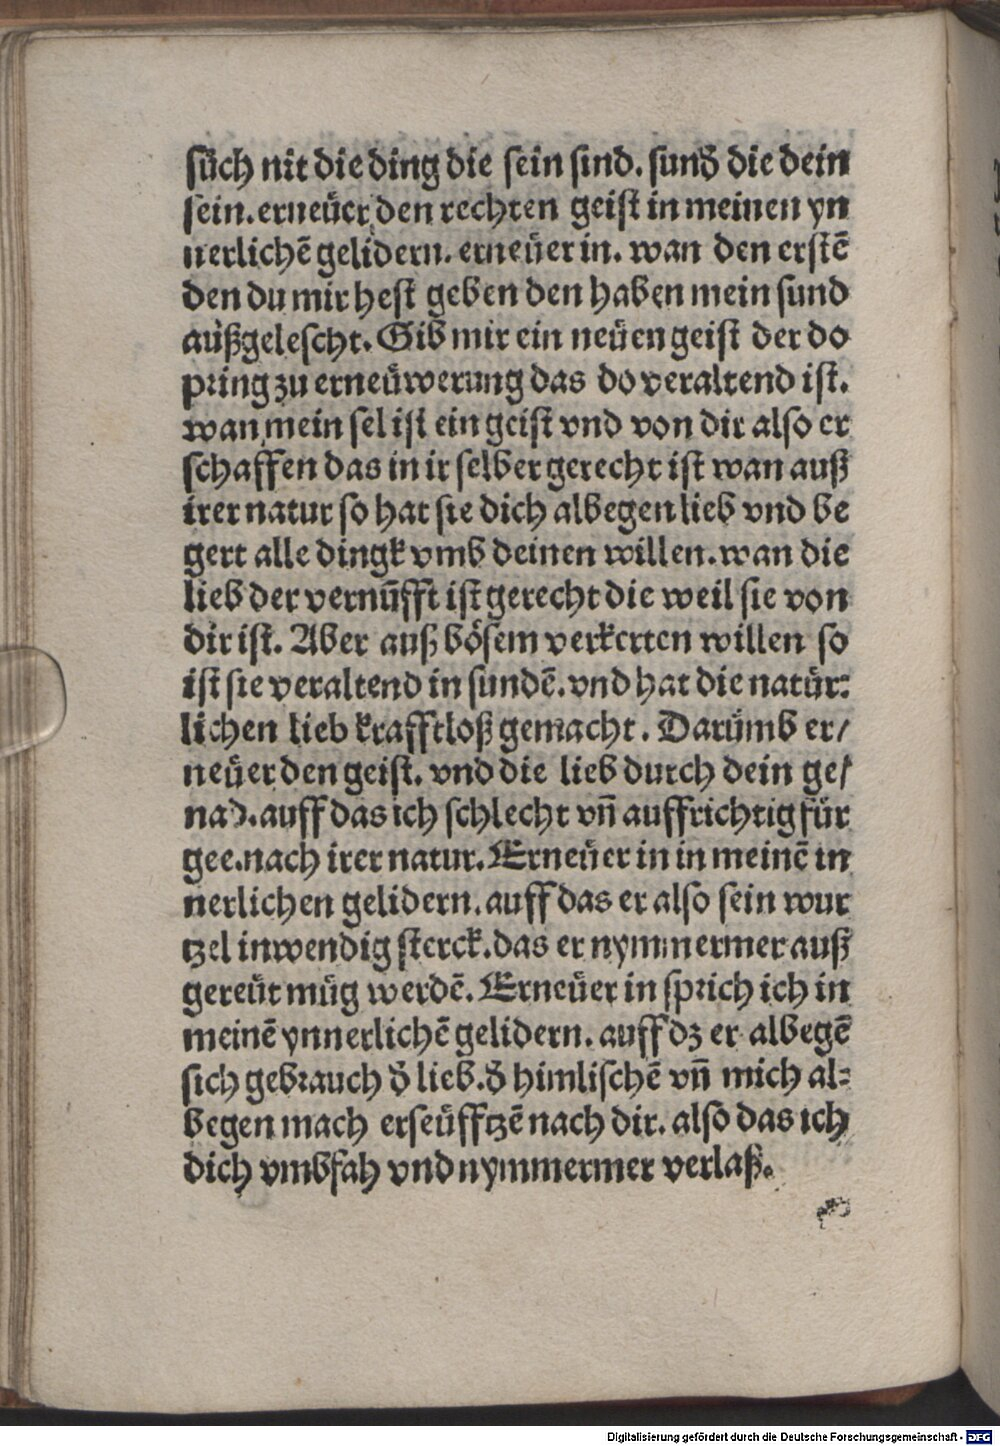 süch nit die ding die sein sind. sunð die dein
sein. erneüer den rechten geist in meinen yn
nerlichē gelidern. erneüer in. wan den erstē
den du mir hest geben den haben mein sund
außgelescht. Gib mir ein neüen geist der do
pring zu erneüwerung das do veraltend ist.
wan mein sel ist ein geist vnd von dir also er
schaffen das in ir selber gerecht ist wan auß
irer natur so hat sie dich albegen lieb vnd be
gert alle dingk vmb deinen willen. wan die
lieb der vernūfft ist gerecht die weil sie von
dir ist. Aber auß bösem verkerten willen so
ist sie veraltend in sundē. vnd hat die natür:
lichen lieb krafftloß gemacht. Darümb er/
neüer den geist. vnd die lieb durch dein ge/
nad. auff das ich schlecht vñ auffrichtig für
gee. nach irer natur. Erneüer in in meinē in
nerlichen gelidern. auff das er also sein wur
tzel inwendig sterck. das er nymmermer auß
gereüt müg werdē. Erneüer in sprich ich in
meinē ynnerlichē gelidern. auff dz er albegē
sich gebrauch ð lieb. ð himlischē vñ mich al=
begen mach erseüfftzē nach dir. also das ich
dich vmbfah vnd nymmermer verlaß.
Digitalisierung gefördert durch die Deutsche Forschungsgemeinschaft - DFG